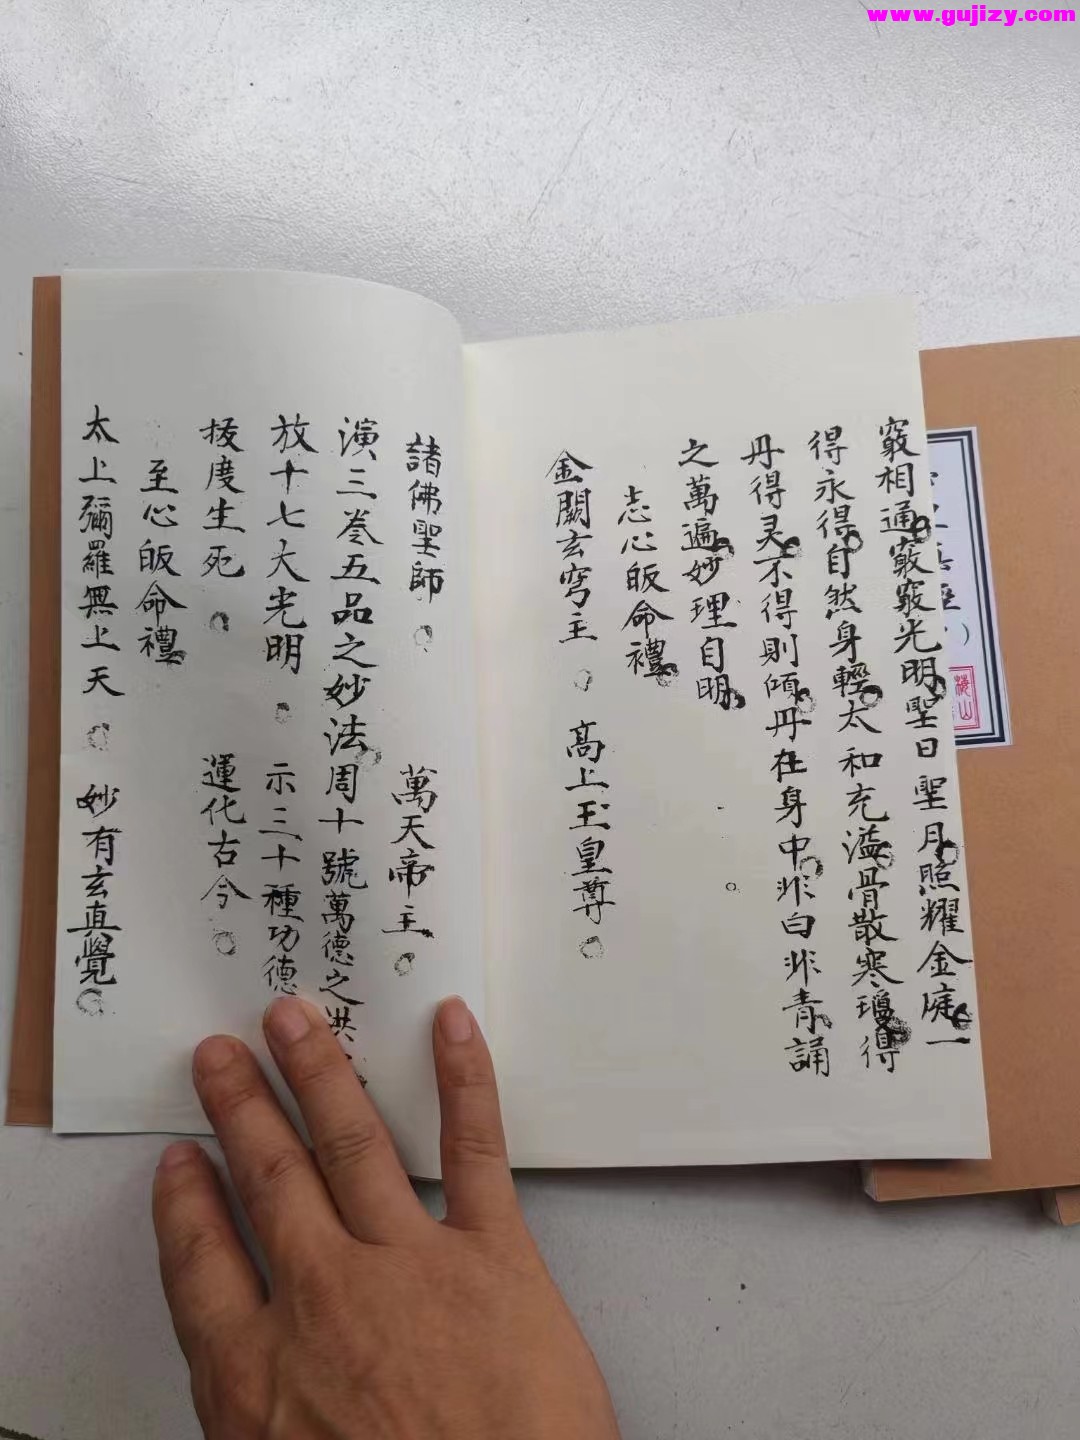 www.gujizy.com
竅相通竅竅光明聖日聖月照耀金庭一
得永得自然身輕太和充溢骨散寒瓊得
丹得灵不得則傾丹在身中非白非青誦
之萬遍妙理自明
志心皈命禮
金闕玄穹主 高上玉皇尊
諸佛聖師 萬天帝主
演三卷五品之妙法周十號萬德之洪
放十七大光明 示三十種功德
拔度生死 運化古今
至心皈命禮
太上彌羅無上天 妙有玄真覺
梅山